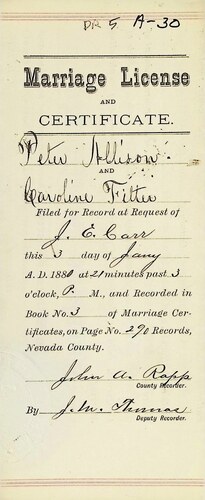 Dr 5 A-30
Marriage License
AND
CERTIFICATE.
Peter Allison
AND
Caroline Fitter
Filed for Record at Request of
J. E. Carr
this 3 day of Jany
A. D. 1880 at 21 minutes past 3
o'clock, P. M., and Recorded in
Book No. 3 of Marriage Cer-
tificates, on Page No. 290 Records,
Nevada County.
John A. Rapp
County Recorder.
By J. M. Thomas
Deputy Recorder.